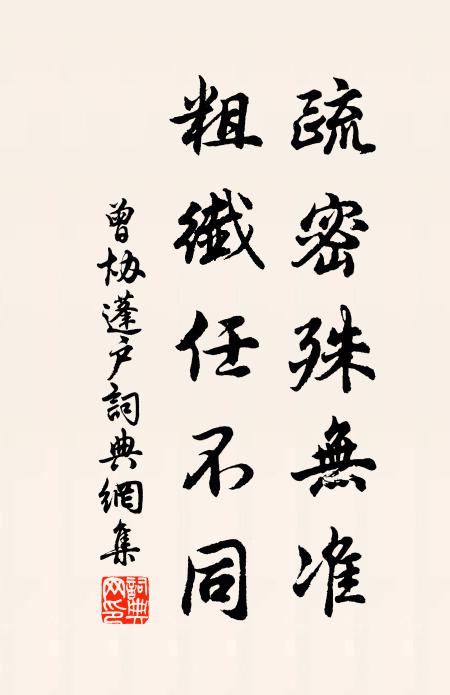 疏密殊無准
粗纖任不同
曾協蓬户詞典網集
詞典網印